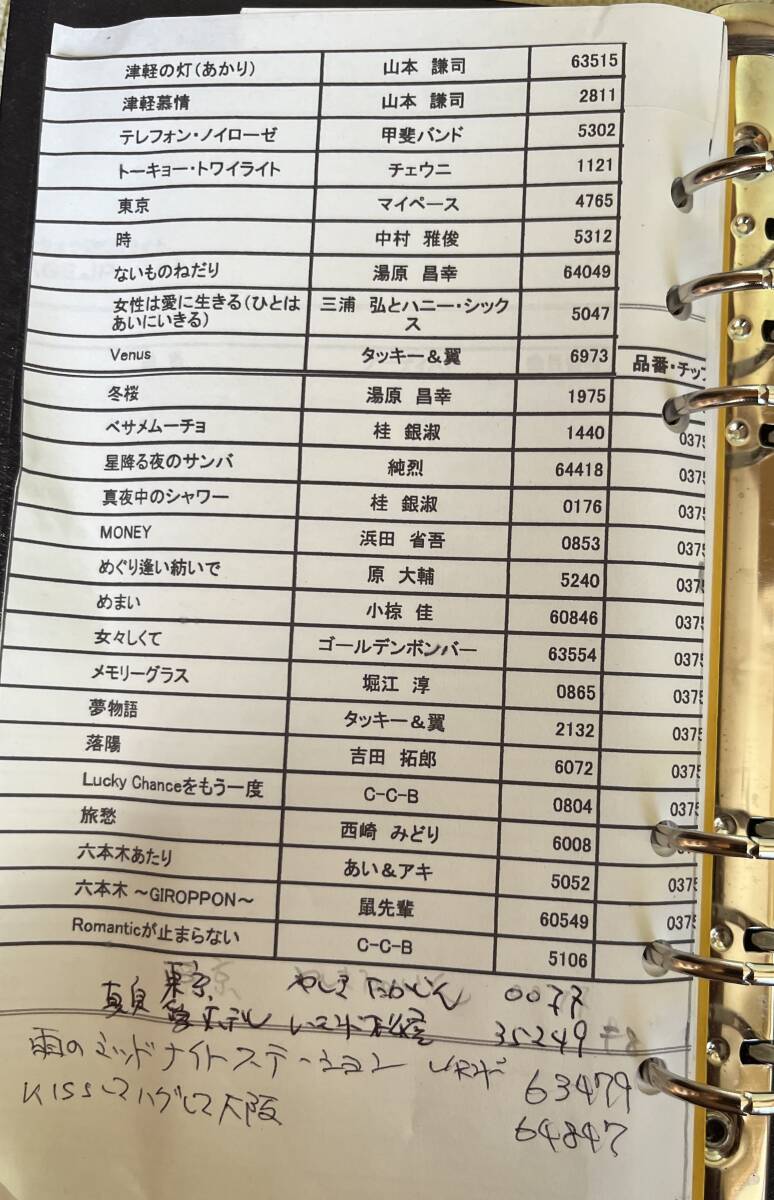 津軽の灯(あかり) 山本 謙司 63515
津軽慕情 山本 謙司 2811
テレフォン・ノイローゼ 甲斐バンド 5302
トーキョー・トワイライト チェウニ 1121
東京 マイペース 4765
時 中村 雅俊 5312
ないものねだり 湯原 昌幸 64049
女性は愛に生きる(ひとは 三浦 弘とハニー・シック 5047
あいにいきる) ス
Venus タッキー&翼 6973 品番・チップ
冬桜 湯原 昌幸 1975
ベサメムーチョ 桂 銀淑 1440 0375
星降る夜のサンバ 純烈 64418 0375
真夜中のシャワー 桂 銀淑 0176 0375
MONEY 浜田 省吾 0853 0375
めぐり逢い紡いで 原 大輔 5240 0375
めまい 小椋 佳 60846 0375
女々しくて ゴールデンボンバー 63554 0375
メモリーグラス 堀江 淳 0865 0375
夢物語 タッキー&翼 2132 0375
落陽 吉田 拓郎 6072 0375
Lucky Chanceをもう一度 C-C-B 0804 0375
旅愁 西崎 みどり 6008
六本木あたり あい&アキ 5052 0375
六本木 ~GIROPPON~ 鼠先輩 60549 0375
Romanticが止まらない C-C-B 5106
東京 やしきたかじん 0077
ホテル 35249
雨のミッドナイトステーション 63479
KISSしてハグして大阪 64847